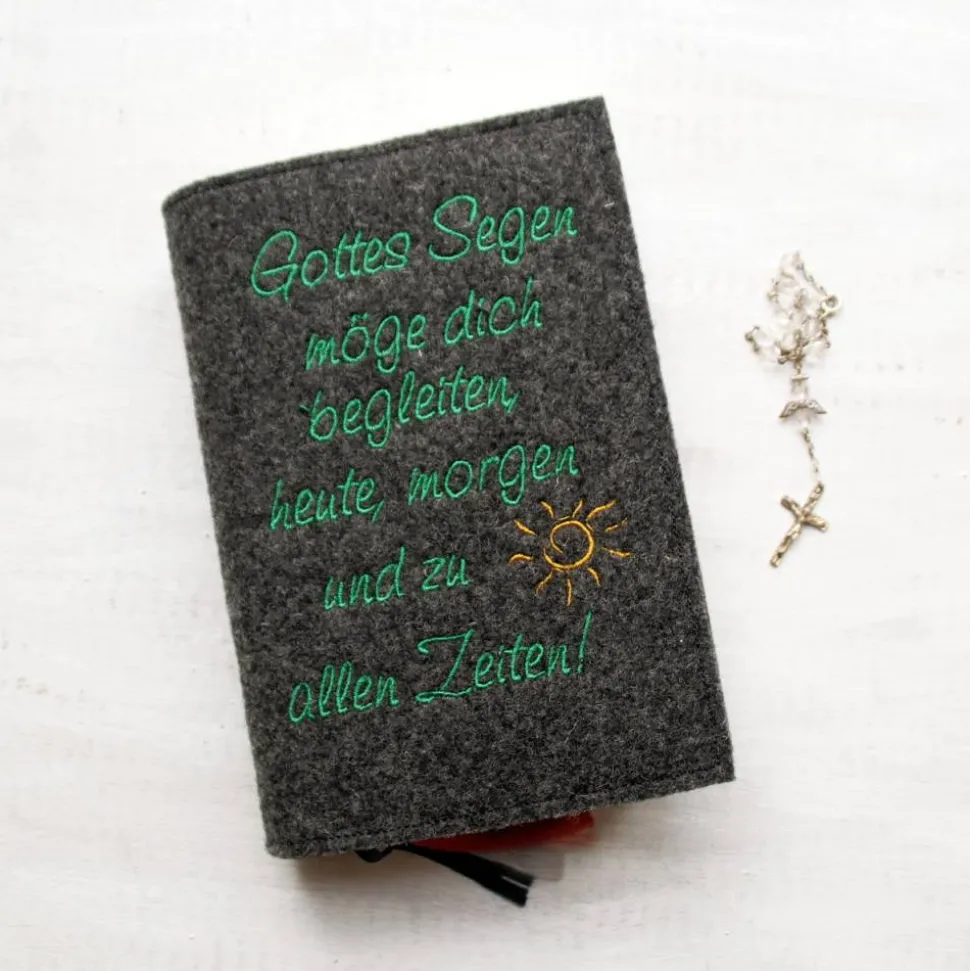 Gottes Segen
möge dich
begleiten,
heute, morgen
und zu
allen Zeiten!